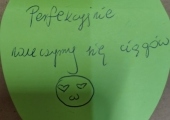 Perfekcyjnie
nauczymy się ciągów